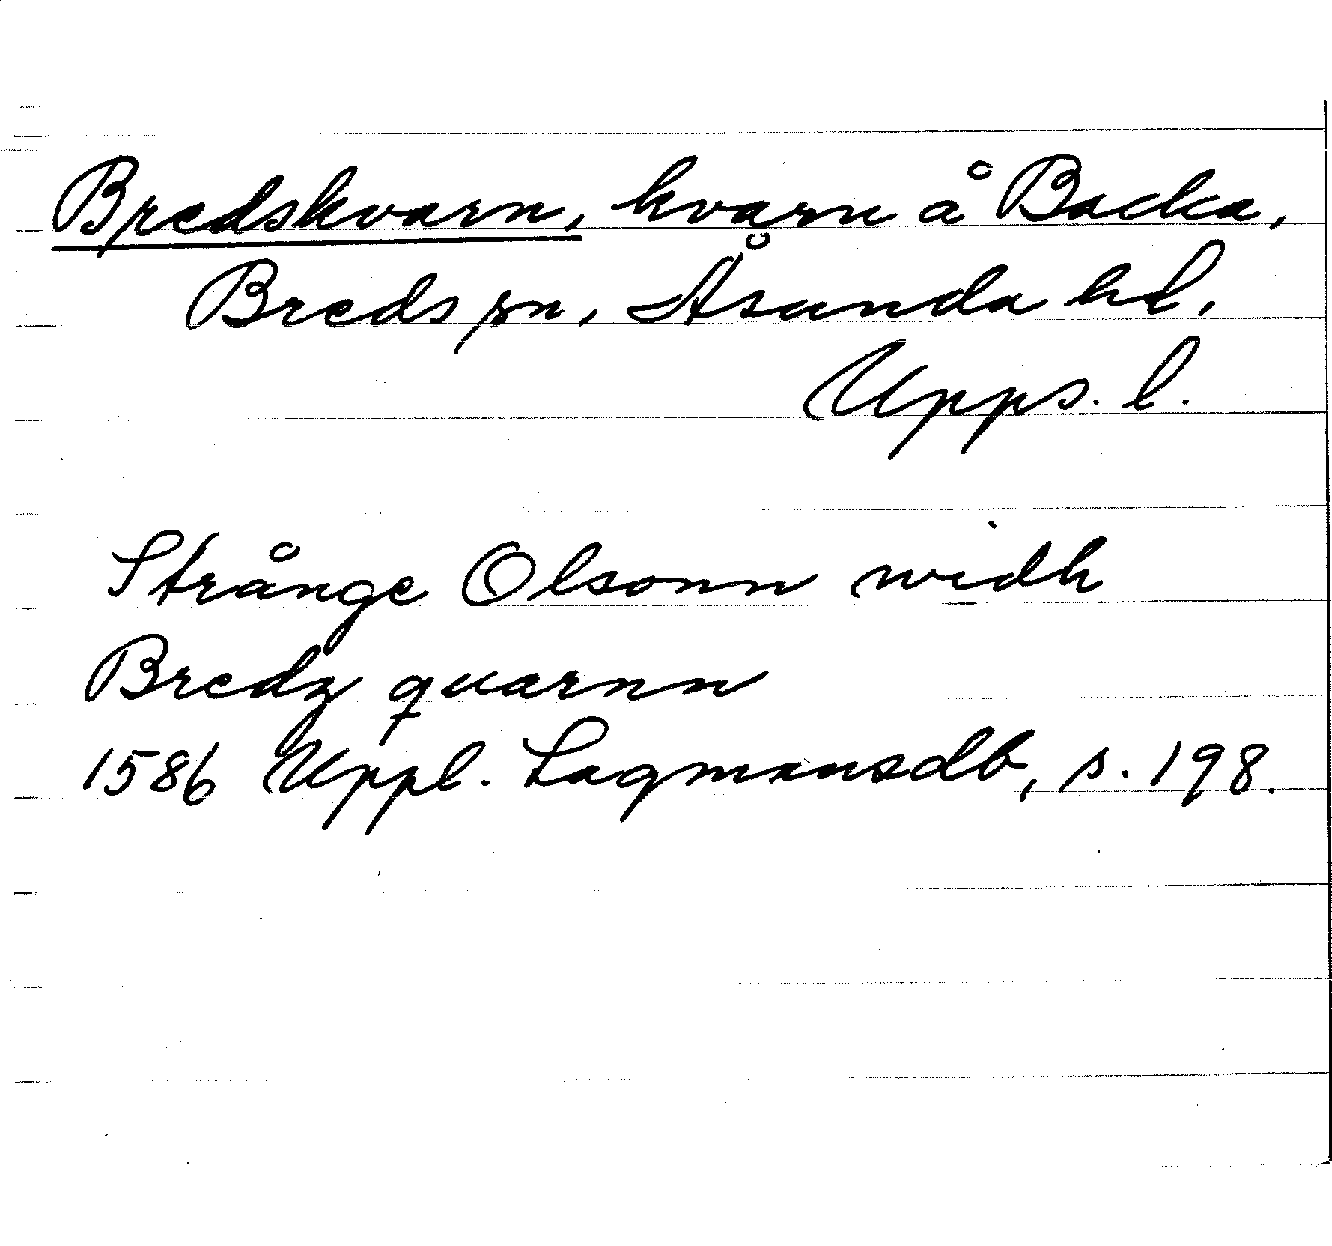 Bredskvarn, kvarn å Backa,
Breds sn, Åsunda hd,
Upps. l.
Strånge Olsonn widh
Bredz quarnn
1586 Uppl. Lagmansdb, s. 198.